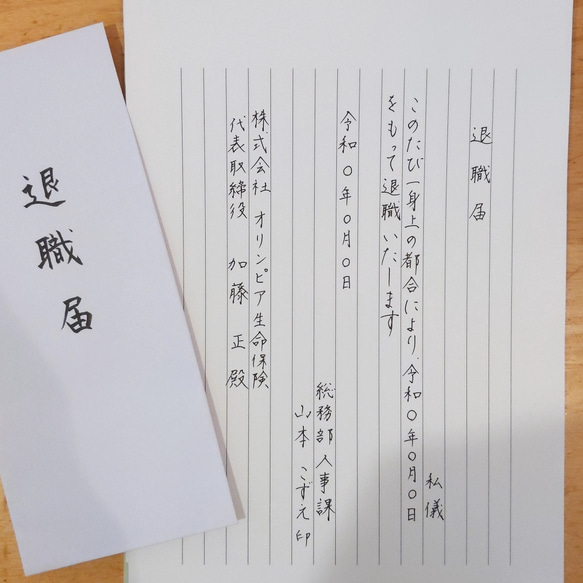 退職届
私儀
このたび一身上の都合により、令和〇年〇月〇日
をもって退職いたします
令和〇年〇月〇日
総務部人事課
山本 こずえ 印
株式会社 オリンピア生命保険
代表取締役 加藤 正 殿
退職届